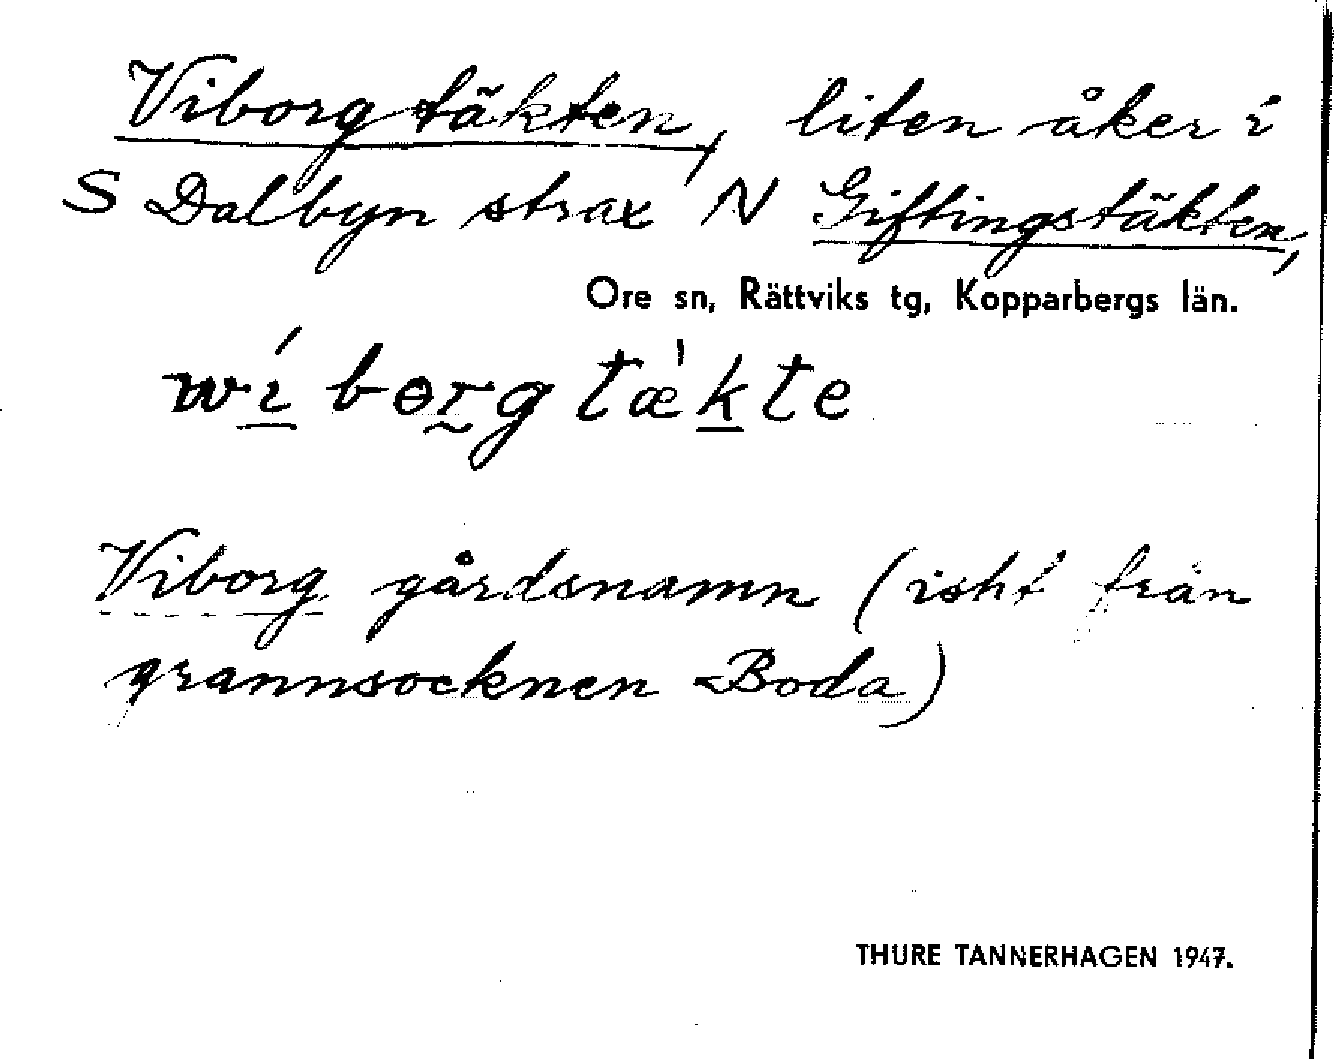 Viborgtäkten, liten åker i
S Dalbyn strax N Giftingstäkten,
Ore sn, Rättviks tg, Kopparbergs län.
wíborgtæ̀kte
Viborg gårdsnamn (isht från
grannsocknen Boda)
THURE TANNERHAGEN 1947.